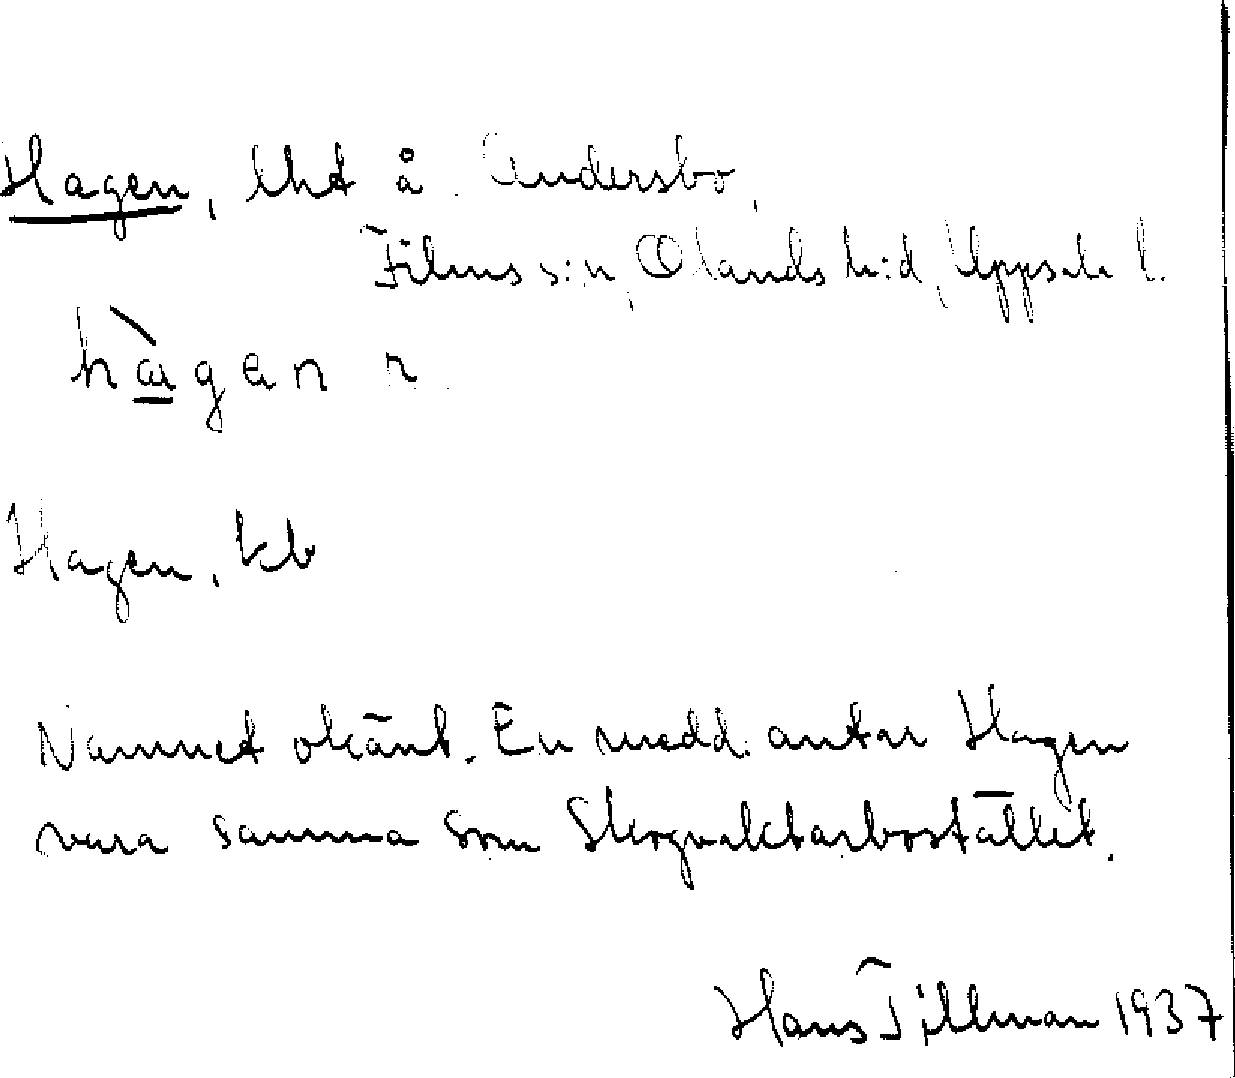 Hagen, lht å Andersbo,
Films s:n, Olands h:d, Uppsala l.
hàgen r.
Hagen, kb
Namnet okänt. En medd. antar Hagen
vara samma som Skogvaktarbostället.
Hans Tillman 1937